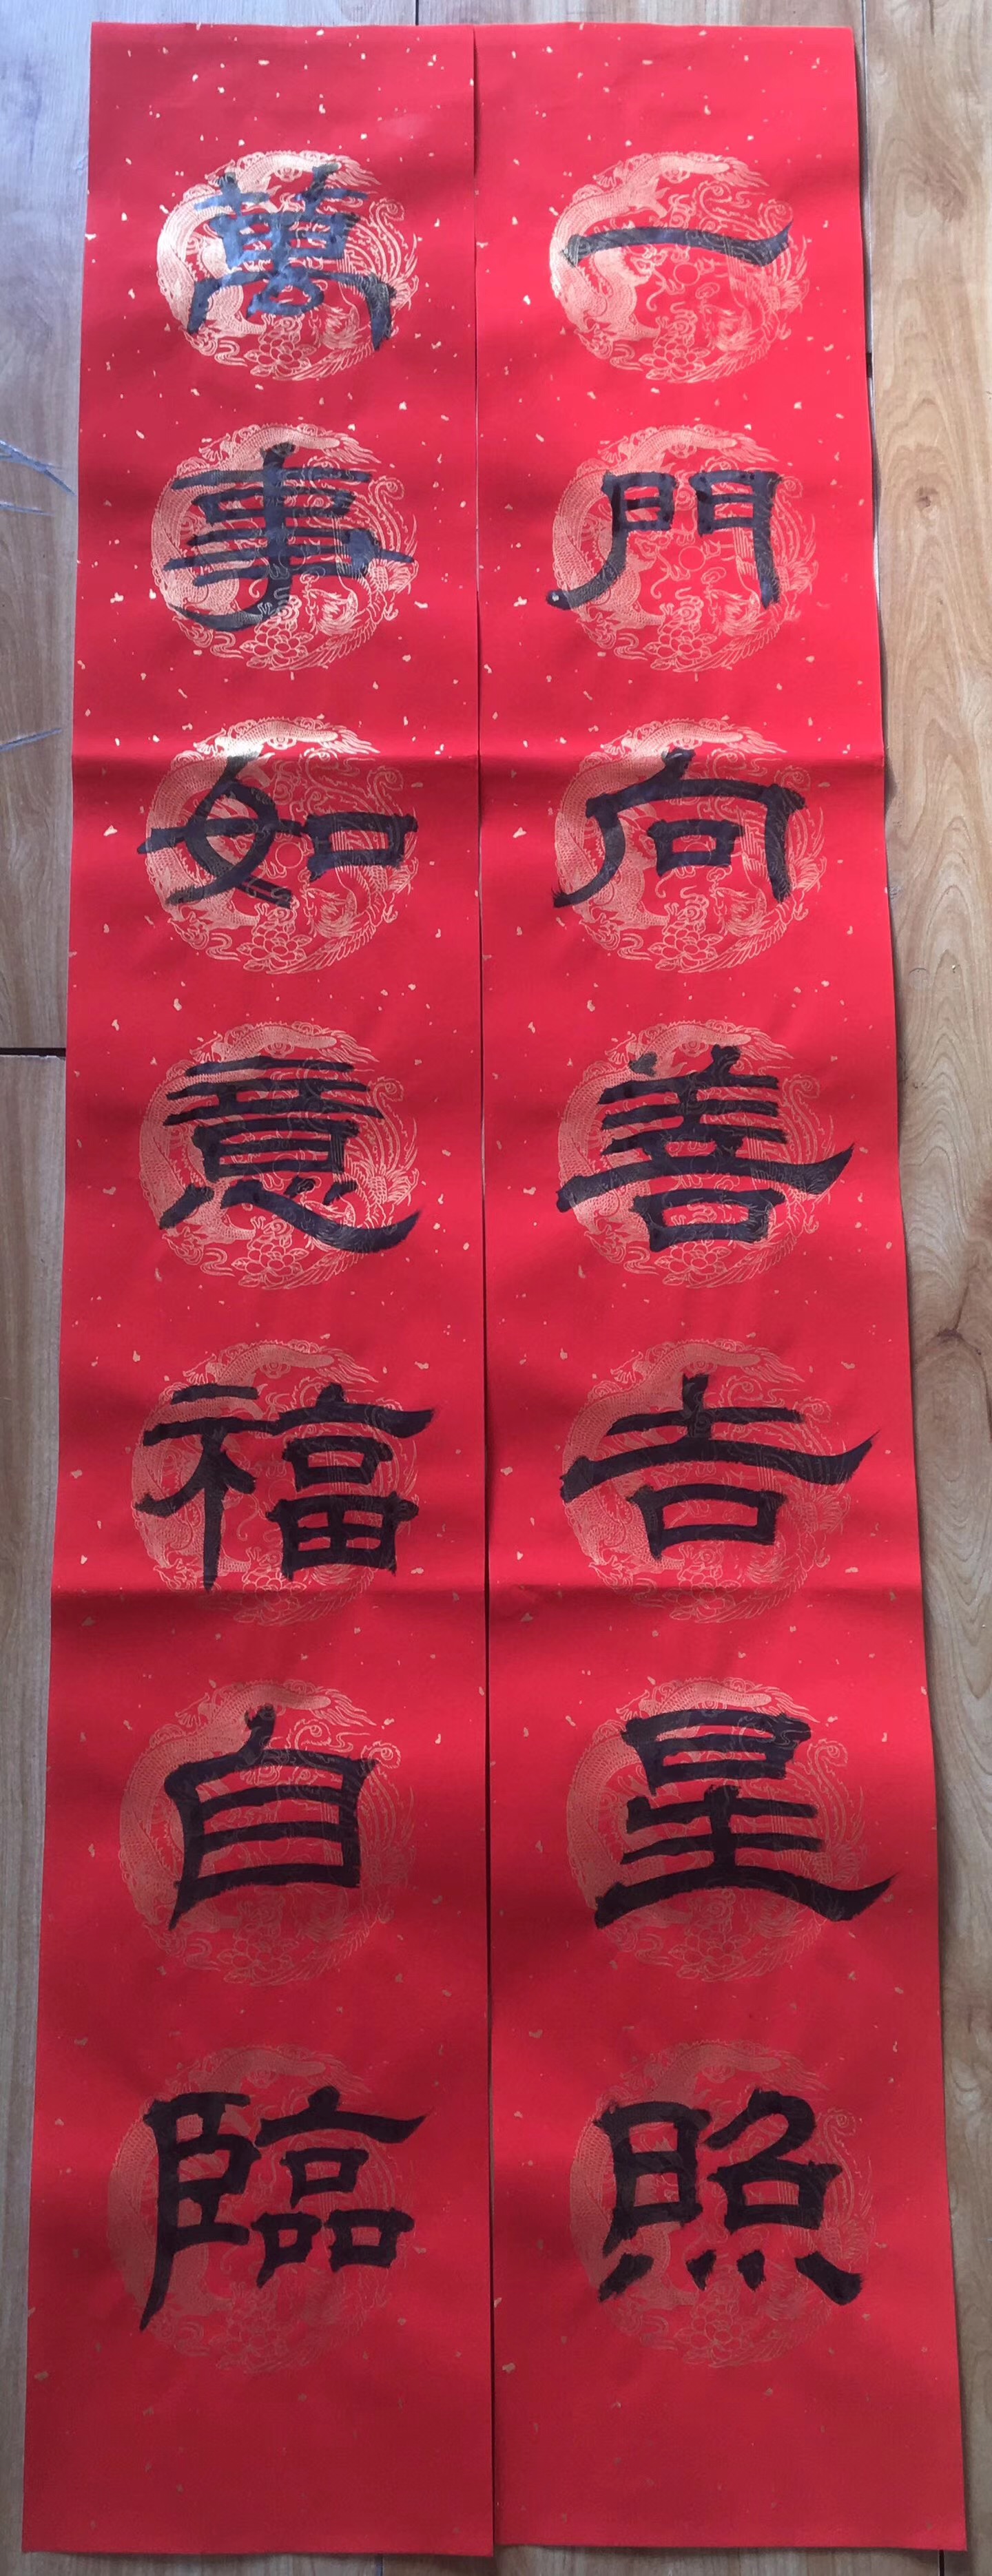 一門向善吉星照
萬事如意福自臨